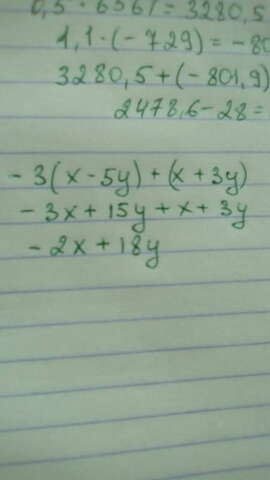 0,5 · 6561 = 3280,5
1,1 · (- 729) = - 80
3280,5 + (- 801,9)
2478,6 - 28 =
- 3(x - 5y) + (x + 3y)
- 3x + 15y + x + 3y
- 2x + 18y